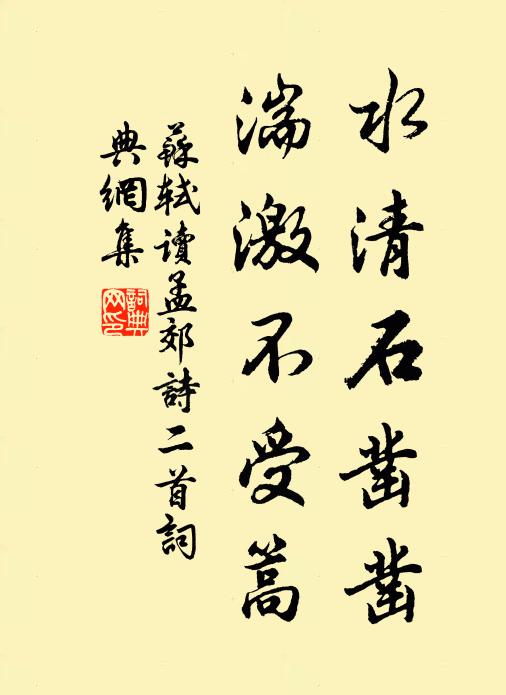 水清石凿凿
湍激不受篙
蘇軾读孟郊詩二首詞
典網集
詞典
网印